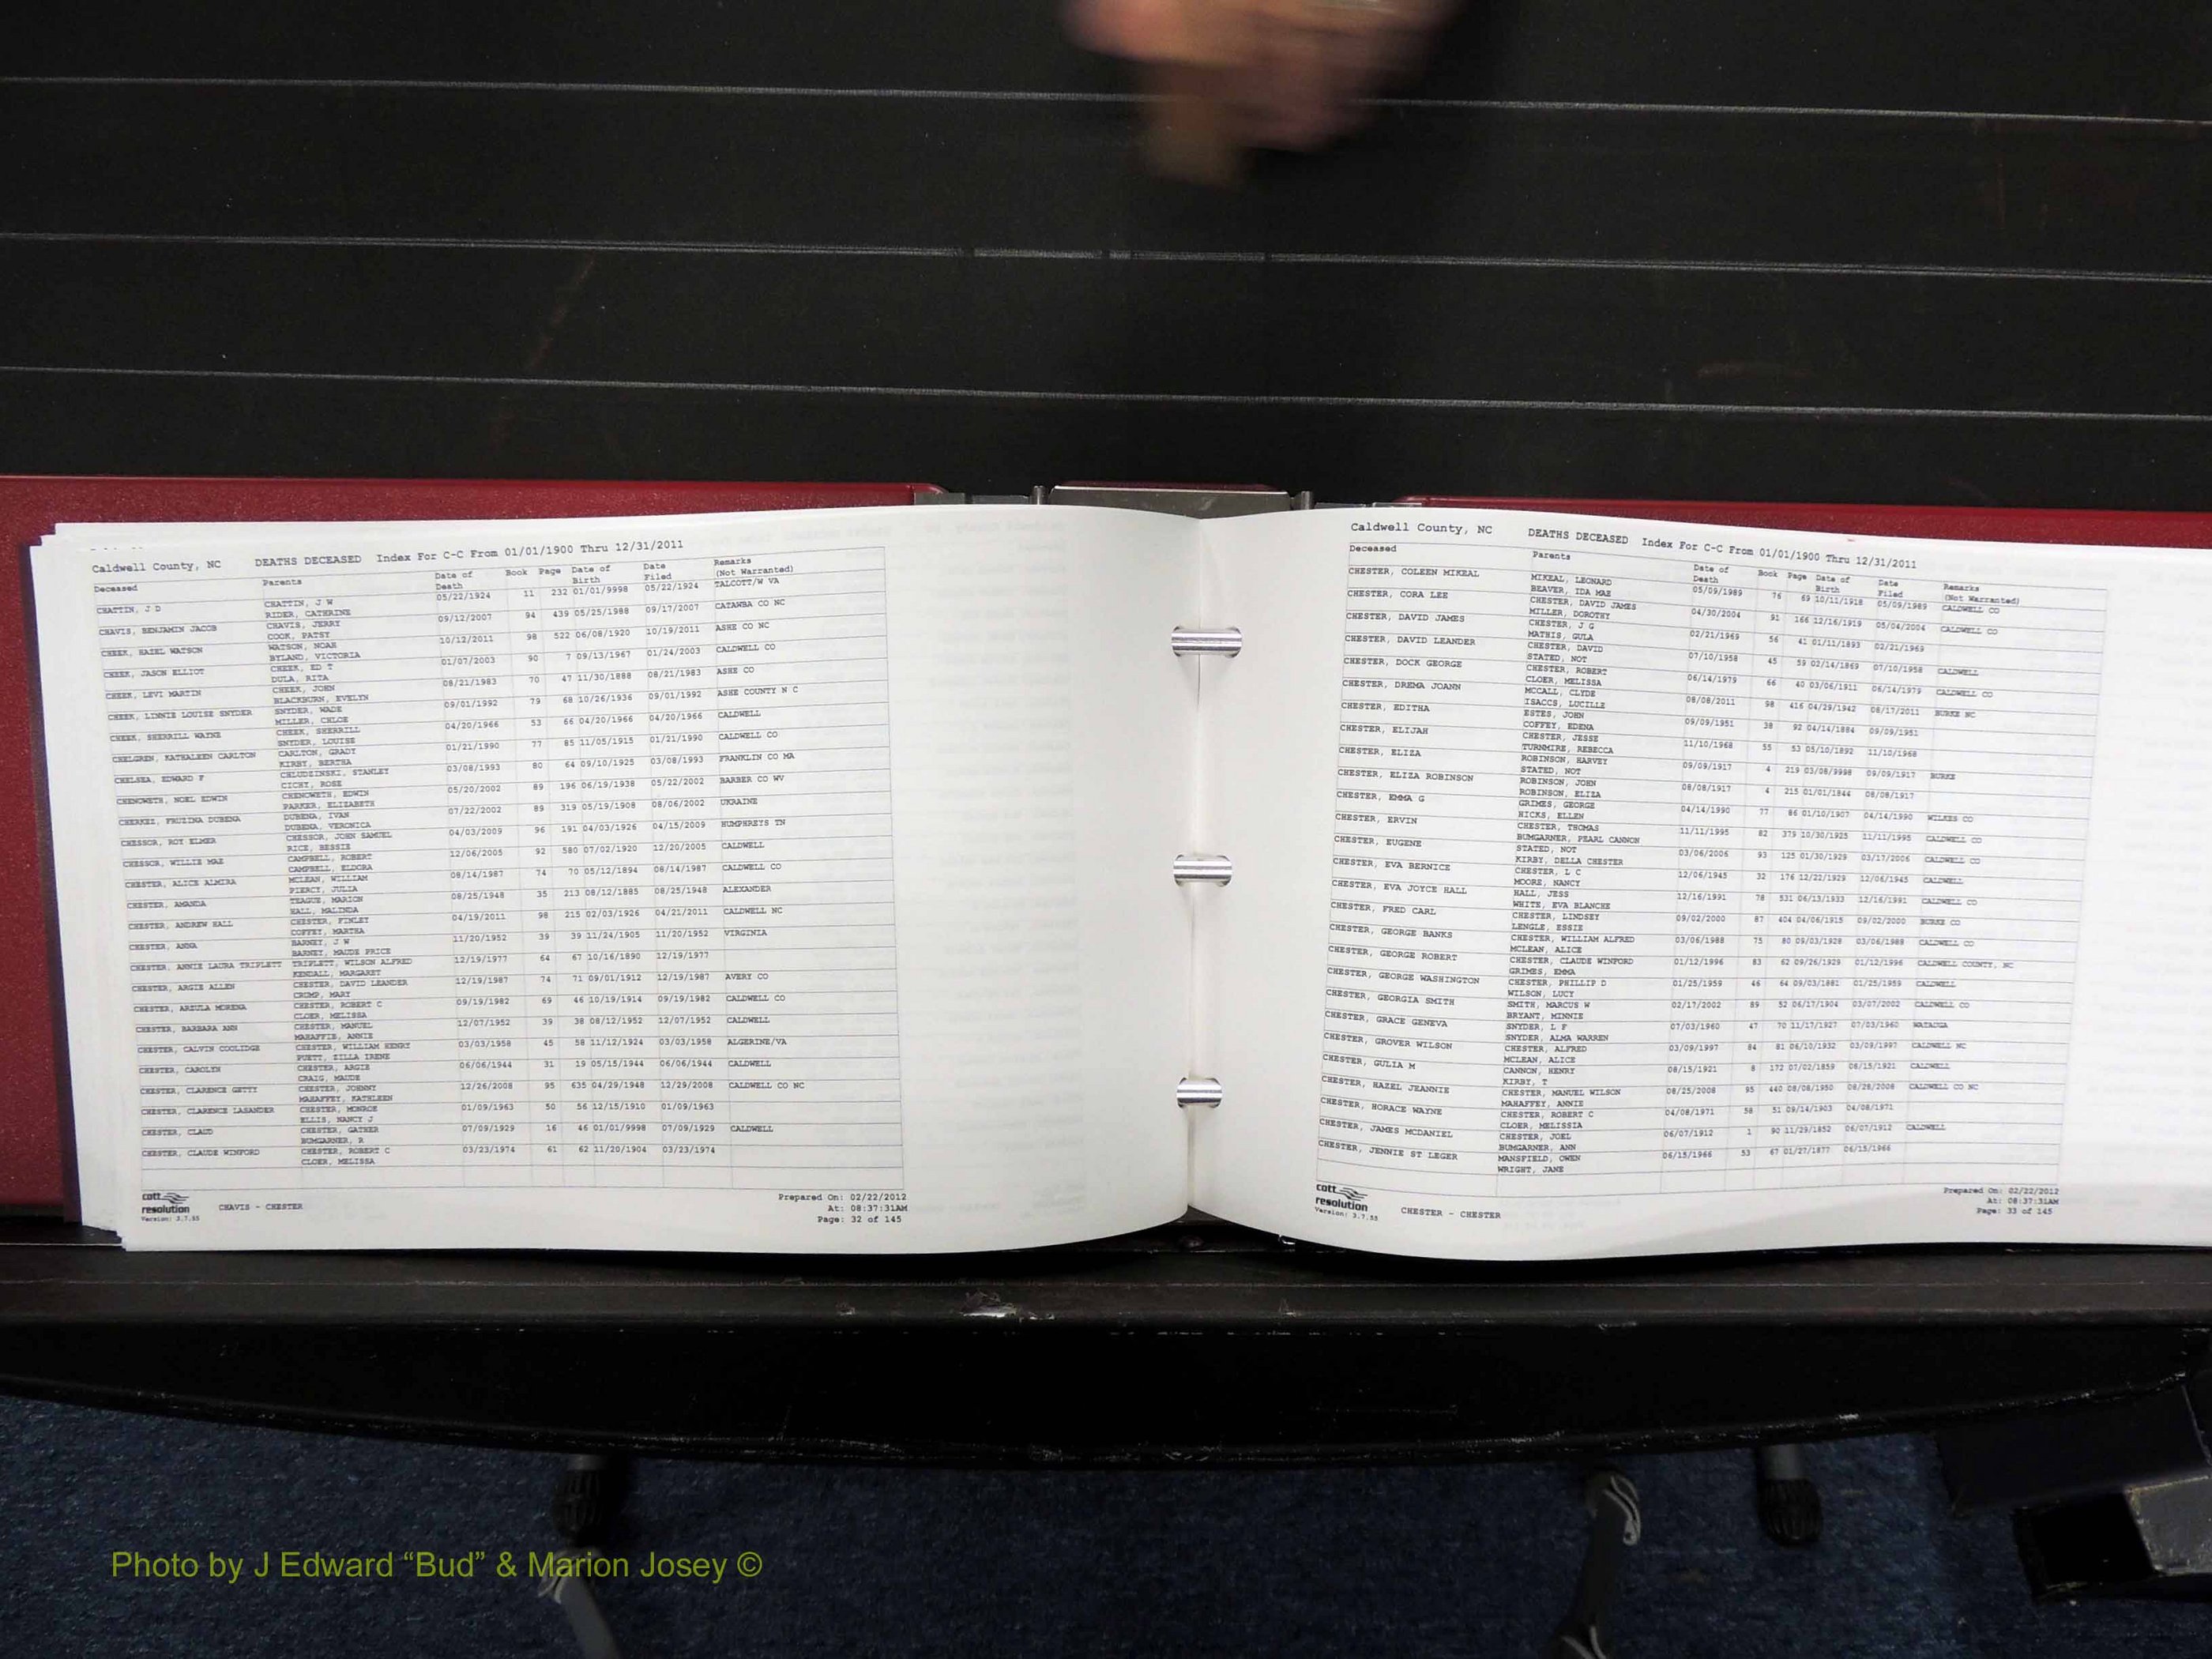 Caldwell County, NC DEATHS DECEASED Index For C-C From 01/01/1900 Thru 12/31/2011
Deceased Parents Date of Death Book Page Date of Birth Date Filed Remarks (Not Warranted)
CHATTIN, J D CHATTIN, J W 05/22/1924 11 232 01/01/9998 05/22/1924 TALCOTT/W VA
RIDER, CATHRINE
CHAVIS, BENJAMIN JACOB CHAVIS, JERRY 09/12/2007 94 439 05/25/1988 09/17/2007 CATAWBA CO NC
COOK, PATSY
CHEEK, HAZEL WATSON WATSON, NOAH 10/12/2011 98 522 06/08/1920 10/19/2011 ASHE CO NC
BYLAND, VICTORIA
CHEEK, JASON ELLIOT CHEEK, ED T 01/07/2003 90 7 09/13/1967 01/24/2003 CALDWELL CO
DULA, RITA
CHEEK, LEVI MARTIN CHEEK, JOHN 08/21/1983 70 47 11/30/1888 08/21/1983 ASHE CO
BLACKBURN, EVELYN
CHEEK, LINNIE LOUISE SNYDER SNYDER, WADE 09/01/1992 79 68 10/26/1936 09/01/1992 ASHE COUNTY N C
MILLER, CHLOE
CHEEK, SHERRILL WAYNE CHEEK, SHERRILL 04/20/1966 53 66 04/20/1966 04/20/1966 CALDWELL
SNYDER, LOUISE
CHELGREN, KATHALEEN CARLTON CARLTON, GRADY 01/21/1990 77 85 11/05/1915 01/21/1990 CALDWELL CO
KIRBY, BERTHA
CHELSEA, EDWARD F CHLUDZINSKI, STANLEY 03/08/1993 80 64 09/10/1925 03/08/1993 FRANKLIN CO MA
CICHY, ROSE
CHENOWETH, NOEL EDWIN CHENOWETH, EDWIN 05/20/2002 89 196 06/19/1938 05/22/2002 BARBER CO WV
PARKER, ELIZABETH
CHERKEZ, FRUZINA DUBENA DUBENA, IVAN 07/22/2002 89 319 05/19/1908 08/06/2002 UKRAINE
DUBENA, VERONICA
CHESSOR, ROY ELMER CHESSOR, JOHN SAMUEL 04/03/2009 96 191 04/03/1926 04/15/2009 HUMPHREYS TN
RICE, BESSIE
CHESSOR, WILLIE MAE CAMPBELL, ROBERT 12/06/2005 92 580 07/02/1920 12/20/2005 CALDWELL
CAMPBELL, ELDORA
CHESTER, ALICE ALMIRA MCLEAN, WILLIAM 08/14/1987 74 70 05/12/1894 08/14/1987 CALDWELL CO
PIERCY, JULIA
CHESTER, AMANDA TEAGUE, MARION 08/25/1948 35 213 08/12/1885 08/25/1948 ALEXANDER
HALL, MALINDA
CHESTER, ANDREW HALL CHESTER, FINLEY 04/19/2011 98 215 02/03/1926 04/21/2011 CALDWELL NC
COFFEY, MARTHA
CHESTER, ANNA BARNEY, J W 11/20/1952 39 39 11/24/1905 11/20/1952 VIRGINIA
BARNEY, MAUDE PRICE
CHESTER, ANNIE LAURA TRIPLETT TRIPLETT, WILSON ALFRED 12/19/1977 64 67 10/16/1890 12/19/1977
KENDALL, MARGARET
CHESTER, ARGIE ALLEN CHESTER, DAVID LEANDER 12/19/1987 74 71 09/01/1912 12/19/1987 AVERY CO
CRUMP, MARY
CHESTER, ARZULA MORENA CHESTER, ROBERT C 09/19/1982 69 46 10/19/1914 09/19/1982 CALDWELL CO
CLOER, MELISSA
CHESTER, BARBARA ANN CHESTER, MANUEL 12/07/1952 39 38 08/12/1952 12/07/1952 CALDWELL
MAHAFFIE, ANNIE
CHESTER, CALVIN COOLIDGE CHESTER, WILLIAM HENRY 03/03/1958 45 58 11/12/1924 03/03/1958 ALGERINE/VA
PUETT, ZILLA IRENE
CHESTER, CAROLYN CHESTER, ARGIE 06/06/1944 31 19 05/15/1944 06/06/1944 CALDWELL
CRAIG, MAUDE
CHESTER, CLARENCE GETTY CHESTER, JOHNNY 12/26/2008 95 635 04/29/1948 12/29/2008 CALDWELL CO NC
MAHAFFEY, KATHLEEN
CHESTER, CLARENCE LASANDER CHESTER, MONROE 01/09/1963 50 56 12/15/1910 01/09/1963
ELLIS, NANCY J
CHESTER, CLAUD CHESTER, GATHER 07/09/1929 16 46 01/01/9998 07/09/1929 CALDWELL
BUMGARNER, R
CHESTER, CLAUDE WINFORD CHESTER, ROBERT C 03/23/1974 61 62 11/20/1904 03/23/1974
CLOER, MELISSA
cott resolution
Version: 3.7.55
CHAVIS - CHESTER
Prepared On: 02/22/2012
At: 08:37:31AM
Page: 32 of 145
Caldwell County, NC DEATHS DECEASED Index For C-C From 01/01/1900 Thru 12/31/2011
Deceased Parents Date of Death Book Page Date of Birth Date Filed Remarks (Not Warranted)
CHESTER, COLEEN MIKEAL MIKEAL, LEONARD 05/09/1989 76 69 10/11/1918 05/09/1989 CALDWELL CO
BEAVER, IDA MAE
CHESTER, CORA LEE CHESTER, DAVID JAMES 04/30/2004 91 166 12/16/1919 05/04/2004 CALDWELL CO
MILLER, DOROTHY
CHESTER, DAVID JAMES CHESTER, J G 02/21/1969 56 41 01/11/1893 02/21/1969
MATHIS, GULA
CHESTER, DAVID LEANDER CHESTER, DAVID 07/10/1958 45 59 02/14/1869 07/10/1958 CALDWELL
STATED, NOT
CHESTER, DOCK GEORGE CHESTER, ROBERT 06/14/1979 66 40 03/06/1911 06/14/1979 CALDWELL CO
CLOER, MELISSA
CHESTER, DREMA JOANN MCCALL, CLYDE 08/08/2011 98 416 04/29/1942 08/17/2011 BURKE NC
ISACCS, LUCILLE
CHESTER, EDITHA ESTES, JOHN 09/09/1951 38 92 04/14/1884 09/09/1951
COFFEY, EDENA
CHESTER, ELIJAH CHESTER, JESSE 11/10/1968 55 53 05/10/1892 11/10/1968
TURNMIRE, REBECCA
CHESTER, ELIZA ROBINSON, HARVEY 09/09/1917 4 219 03/08/9998 09/09/1917 BURKE
STATED, NOT
CHESTER, ELIZA ROBINSON ROBINSON, JOHN 08/08/1917 4 215 01/01/1844 08/08/1917
ROBINSON, ELIZA
CHESTER, EMMA G GRIMES, GEORGE 04/14/1990 77 86 01/10/1907 04/14/1990 WILKES CO
HICKS, ELLEN
CHESTER, ERVIN CHESTER, THOMAS 11/11/1995 82 379 10/30/1925 11/11/1995 CALDWELL CO
BUMGARNER, PEARL CANNON
CHESTER, EUGENE STATED, NOT 03/06/2006 93 125 01/30/1929 03/17/2006 CALDWELL CO
KIRBY, DELLA CHESTER
CHESTER, EVA BERNICE CHESTER, L C 12/06/1945 32 176 12/22/1929 12/06/1945 CALDWELL
MOORE, NANCY
CHESTER, EVA JOYCE HALL HALL, JESS 12/16/1991 78 531 06/13/1933 12/16/1991 CALDWELL CO
WHITE, EVA BLANCHE
CHESTER, FRED CARL CHESTER, LINDSEY 09/02/2000 87 404 04/06/1915 09/02/2000 BURKE CO
LENGLE, ESSIE
CHESTER, GEORGE BANKS CHESTER, WILLIAM ALFRED 03/06/1988 75 80 09/03/1928 03/06/1988 CALDWELL CO
MCLEAN, ALICE
CHESTER, GEORGE ROBERT CHESTER, CLAUDE WINFORD 01/12/1996 83 62 09/26/1929 01/12/1996 CALDWELL COUNTY, NC
GRIMES, EMMA
CHESTER, GEORGE WASHINGTON CHESTER, PHILLIP D 01/25/1959 46 64 09/03/1881 01/25/1959 CALDWELL
WILSON, LUCY
CHESTER, GEORGIA SMITH SMITH, MARCUS W 02/17/2002 89 52 06/17/1904 03/07/2002 CALDWELL CO
BRYANT, MINNIE
CHESTER, GRACE GENEVA SNYDER, L F 07/03/1960 47 70 11/17/1927 07/03/1960 WATAUGA
SNYDER, ALMA WARREN
CHESTER, GROVER WILSON CHESTER, ALFRED 03/09/1997 84 81 06/10/1932 03/09/1997 CALDWELL NC
MCLEAN, ALICE
CHESTER, GULIA M CANNON, HENRY 08/15/1921 8 172 07/02/1859 08/15/1921 CALDWELL
KIRBY, T
CHESTER, HAZEL JEANNIE CHESTER, MANUEL WILSON 08/25/2008 95 440 08/08/1950 08/28/2008 CALDWELL CO NC
MAHAFFEY, ANNIE
CHESTER, HORACE WAYNE CHESTER, ROBERT C 04/08/1971 58 51 09/14/1903 04/08/1971
CLOER, MELISSIA
CHESTER, JAMES MCDANIEL CHESTER, JOEL 06/07/1912 1 90 11/29/1852 06/07/1912 CALDWELL
BUMGARNER, ANN
CHESTER, JENNIE ST LEGER MANSFIELD, OWEN 06/15/1966 53 67 01/27/1877 06/15/1966
WRIGHT, JANE
cott resolution
Version: 3.7.55
CHESTER - CHESTER
Prepared On: 02/22/2012
At: 08:37:31AM
Page: 33 of 145
Photo by J Edward “Bud” & Marion Josey ©